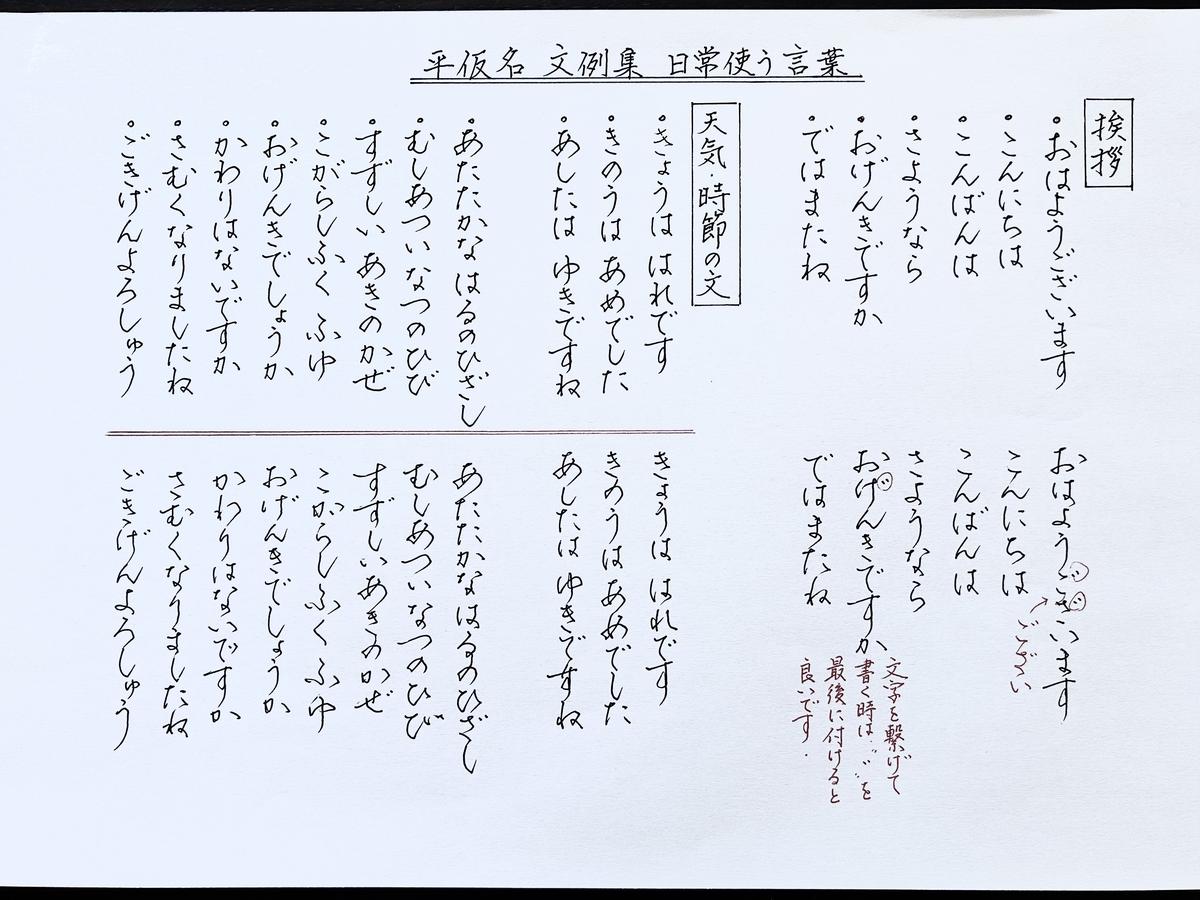 平仮名 文例集 日常使う言葉
挨拶
・おはようございます
・こんにちは
・こんばんは
・さようなら
・おげんきですか
・ではまたね
おはようございます
ござい
こんにちは
こんばんは
さようなら
おげんきですか
文字を繋げて
書く時は、゛を
最後に付けると
良いです.
ではまたね
天気・時節の文
・きょうは はれです
・きのうは あめでした
・あしたは ゆきですね
・あたたかな はるのひざし
・むしあつい なつのひび
・すずしい あきのかぜ
・こがらしふく ふゆ
・おげんきでしょうか
・かわりはないですか
・さむくなりましたね
・ごきげんよろしゅう
きょうは はれです
きのうはあめでした
あしたは ゆきですね
あたたかなはるのひざし
むしあつい なつのひび
すずしいあきのかぜ
こがらしふく ふゆ
おげんきでしょうか
かわりはないですか
さむくなりましたね
ごきげんよろしゅう